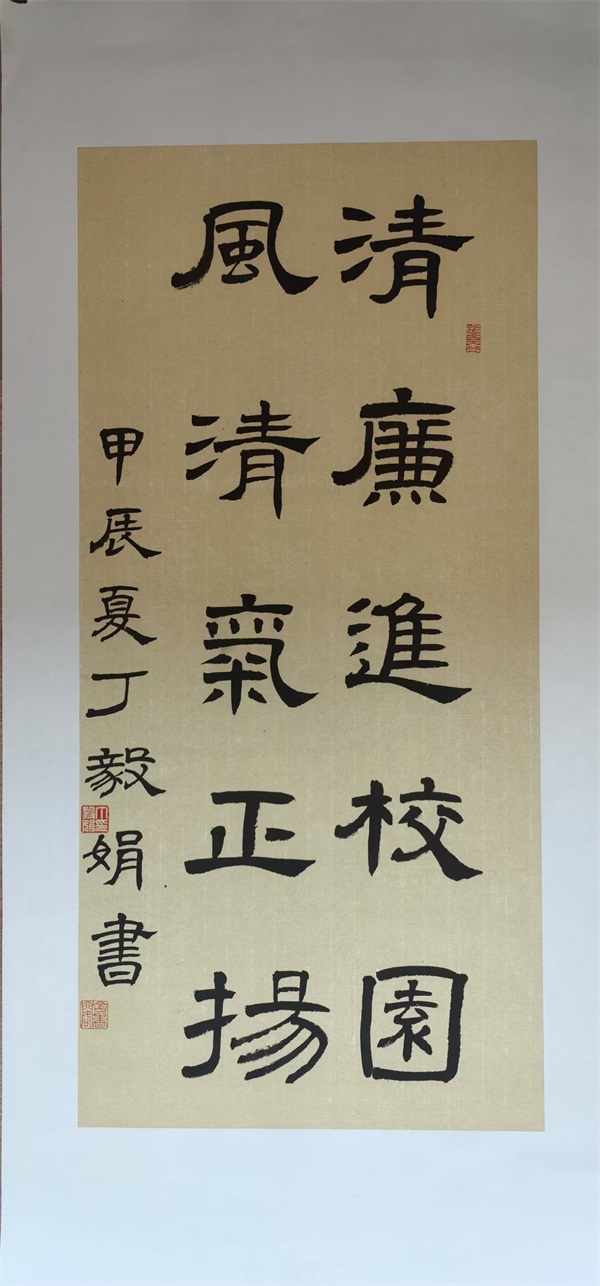 清廉進校園
風清氣正揚
甲辰夏丁毅娟書